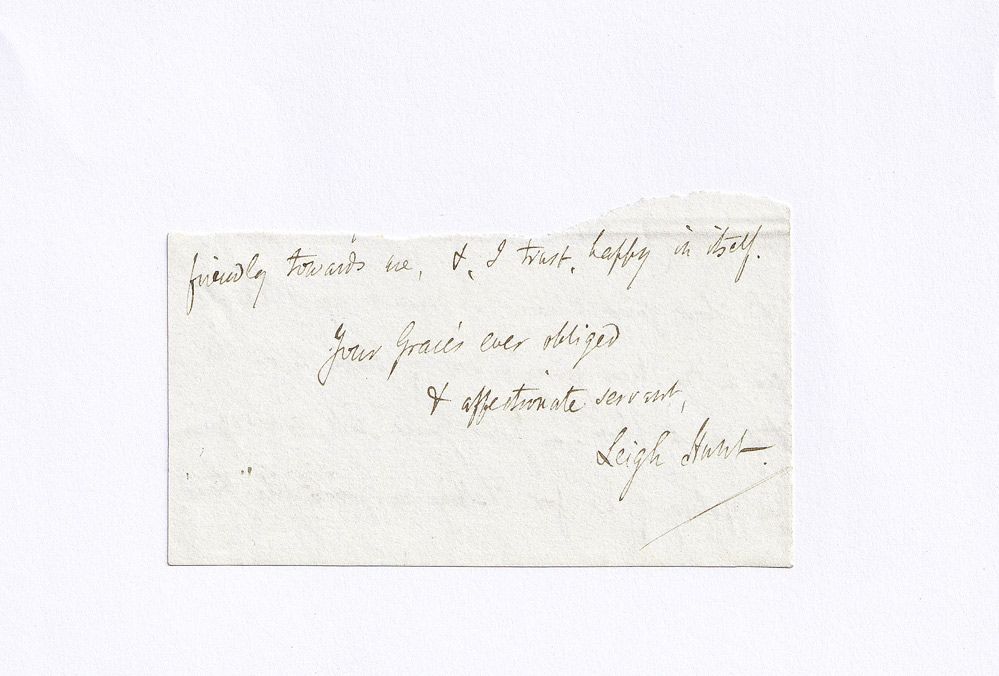 friendly towards me, &, I trust, happy in itself.
Your Grace's ever obliged
& affectionate servant,
Leigh Hunt.